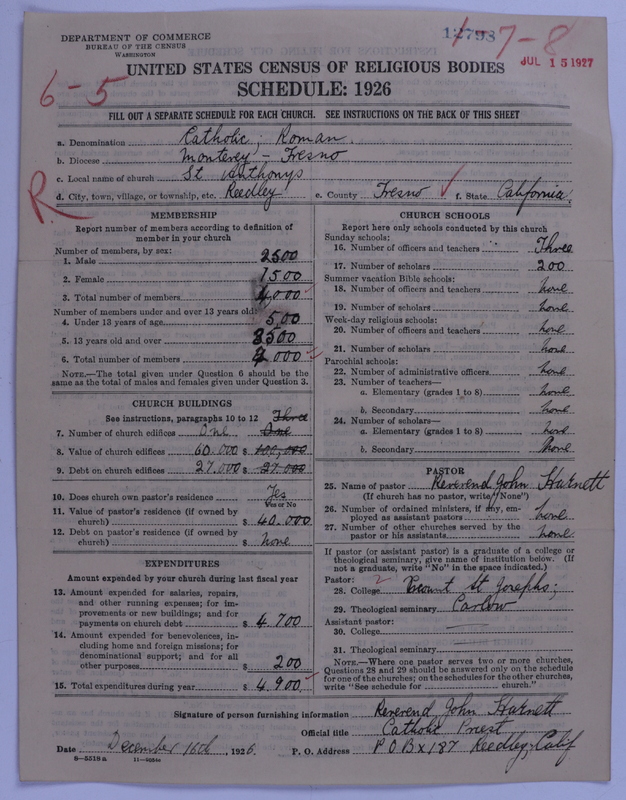 DEPARTMENT OF COMMERCE
BUREAU OF THE CENSUS
WASHINGTON
12793
1-7-8
JUL 15 1927
6-5
UNITED STATES CENSUS OF RELIGIOUS BODIES
SCHEDULE: 1926
FILL OUT A SEPARATE SCHEDULE FOR EACH CHURCH. SEE INSTRUCTIONS ON THE BACK OF THIS SHEET
a. Denomination Catholic, Roman
b. Diocese Monterey - Fresno
c. Local name of church St Anthonys
d. City, town, village, or township, etc. Reedley e. County Fresno f. State California
R
MEMBERSHIP
Report number of members according to definition of
member in your church
Number of members, by sex:
1. Male 2500
2. Female 1500
3. Total number of members 4000
Number of members under and over 13 years old:
4. Under 13 years of age 500
5. 13 years old and over 3500
6. Total number of members 4000
NOTE.—The total given under Question 6 should be the
same as the total of males and females given under Question 3.
CHURCH BUILDINGS
See instructions, paragraphs 10 to 12 Three
7. Number of church edifices One One
8. Value of church edifices 60.000 $ 100,000
9. Debt on church edifices 27.000 $ 27.000
10. Does church own pastor's residence Yes
Yes or No
11. Value of pastor's residence (if owned by
church) $ 40.000
12. Debt on pastor's residence (if owned by
church) $ none
EXPENDITURES
Amount expended by your church during last fiscal year
13. Amount expended for salaries, repairs,
and other running expenses; for im-
provements or new buildings; and for
payments on church debt $ 4.700
14. Amount expended for benevolences, in-
cluding home and foreign missions; for
denominational support; and for all
other purposes $ 200
15. Total expenditures during year $ 4.900
CHURCH SCHOOLS
Report here only schools conducted by this church
Sunday schools:
16. Number of officers and teachers Three
17. Number of scholars 200
Summer vacation Bible schools:
18. Number of officers and teachers none
19. Number of scholars none
Week-day religious schools:
20. Number of officers and teachers none
21. Number of scholars none
Parochial schools:
22. Number of administrative officers none
23. Number of teachers—
a. Elementary (grades 1 to 8) none
b. Secondary none
24. Number of scholars—
a. Elementary (grades 1 to 8) none
b. Secondary none
PASTOR
25. Name of pastor Reverend John Harnett
(If church has no pastor, write "None")
26. Number of ordained ministers, if any, em-
ployed as assistant pastors none
27. Number of other churches served by the
pastor or his assistants none
If pastor (or assistant pastor) is a graduate of a college or
theological seminary, give name of institution below. (If
not a graduate, write "No" in the space indicated.)
Pastor:
28. College 2 Mount St Josephs
29. Theological seminary Carlow
Assistant pastor:
30. College
31. Theological seminary
NOTE.—Where one pastor serves two or more churches,
Questions 28 and 29 should be answered only on the schedule
for one of the churches; on the schedules for the other churches,
write "See schedule for church."
Signature of person furnishing information Reverend John Harnett
Official title Catholic Priest
Date December 16th, 1926. P. O. Address P O Bx 187 Reedley, Calif
8-5518a